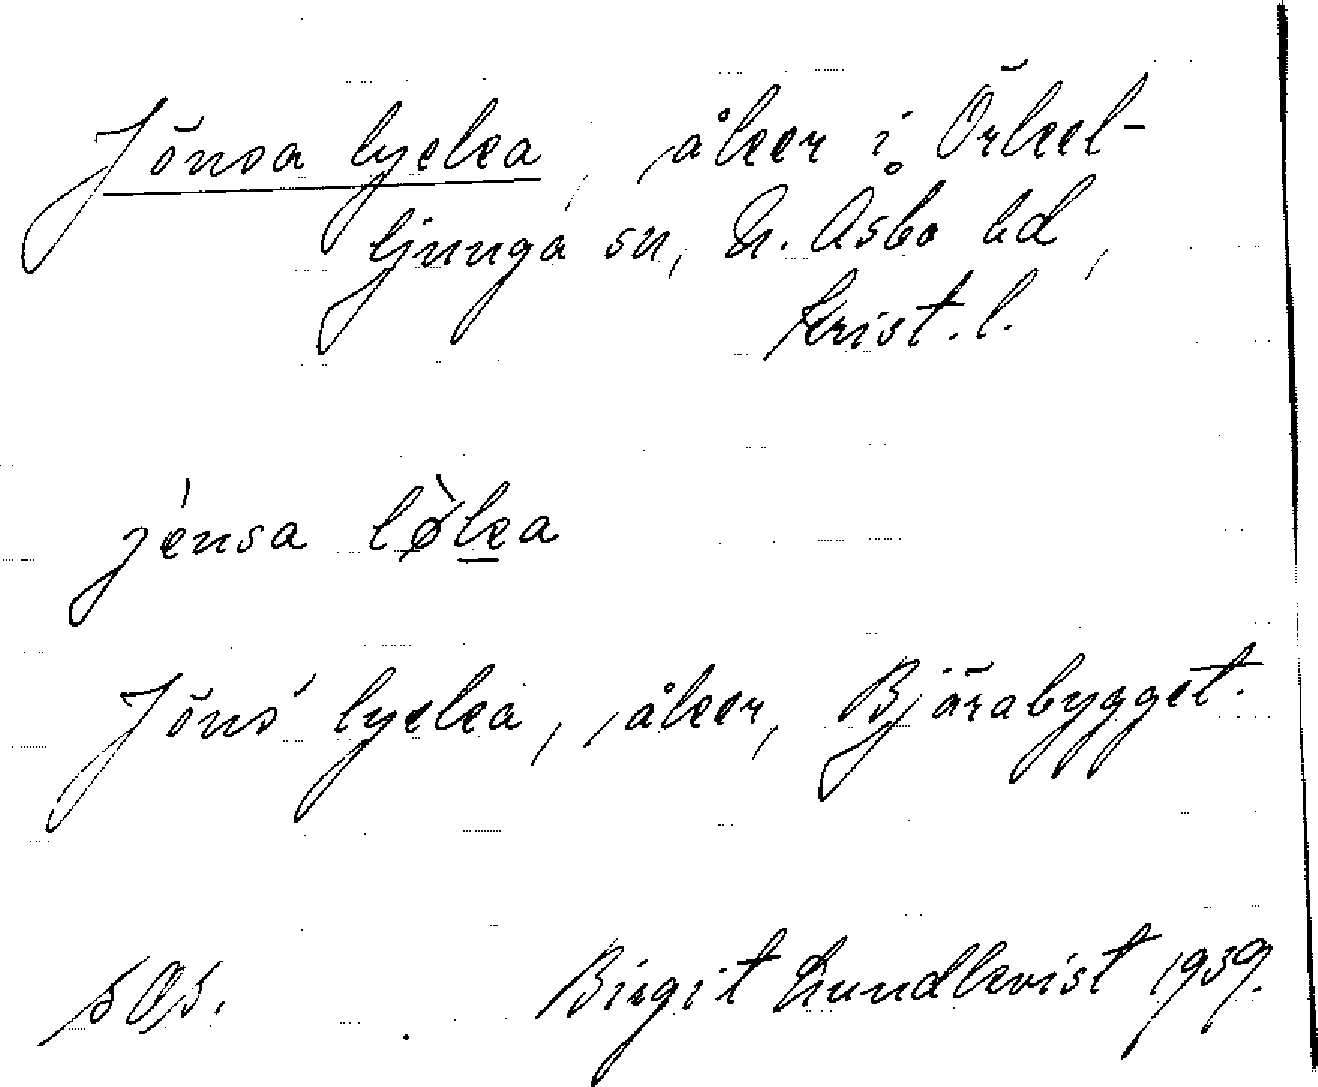 Jönsa lycka, åker i Örkel-
ljunga sn, N. Åsbo hd,
Krist. l.
jènsa lø̀ka
Jöns' lycka, åker, Bjärabygget.
Birgit Lundkvist 1939.